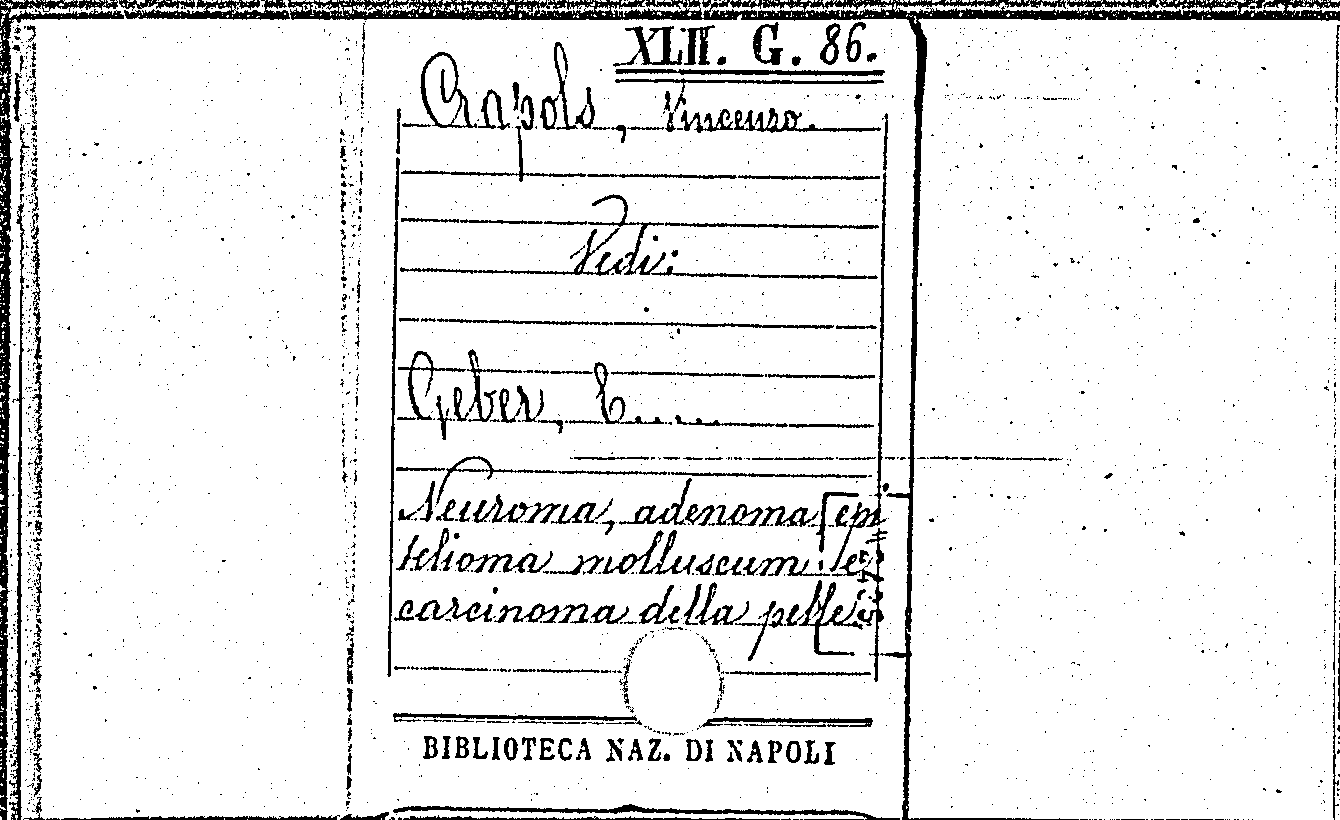 XLII. G. 86.
Crapols, Vincenzo.
Vedi:
Geber, E.....
Neuroma, adenoma, epi
telioma molluscum. e
carcinoma della pelle.
BIBLIOTECA NAZ. DI NAPOLI